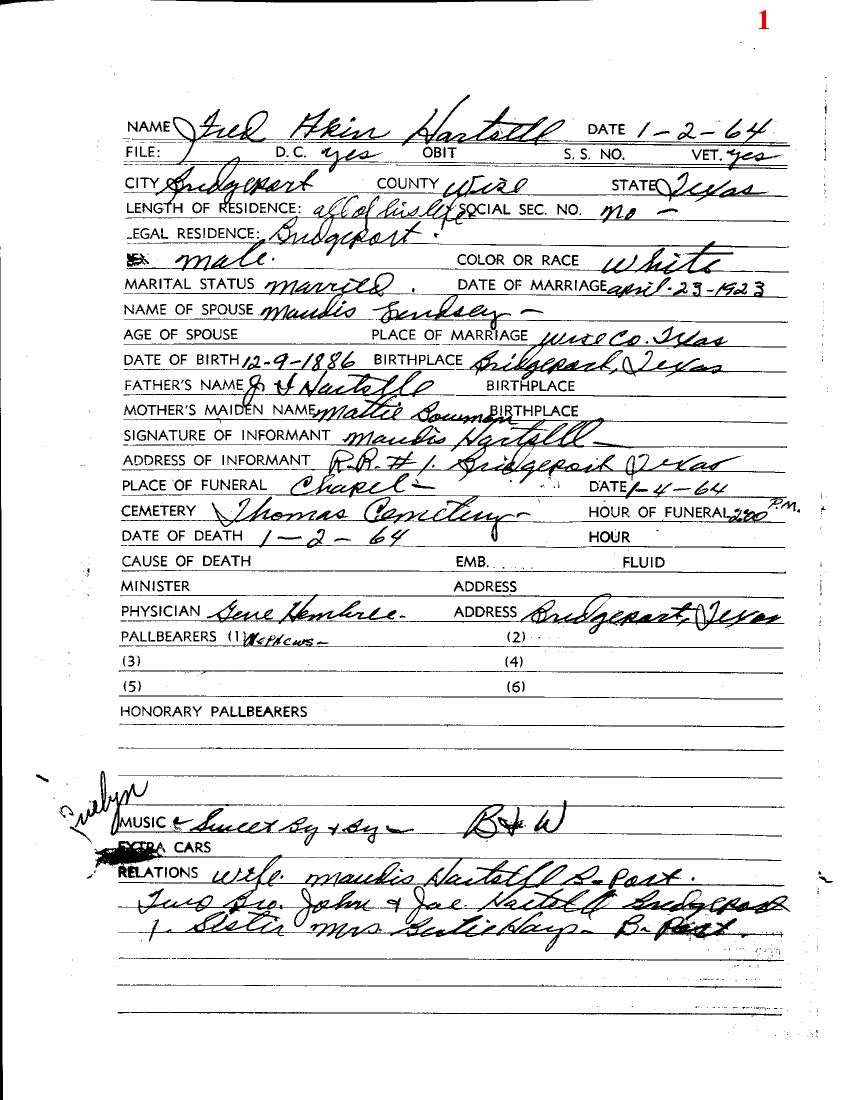 1
NAME Fred Akin Hartsell DATE 1-2-64
FILE: D.C. yes OBIT S. S. NO. VET. yes
CITY Bridgeport COUNTY Wise STATE Texas
LENGTH OF RESIDENCE: all of his life SOCIAL SEC. NO. no -
LEGAL RESIDENCE: Bridgeport.
SEX male.
COLOR OR RACE White
MARITAL STATUS married. DATE OF MARRIAGE april-23-1923
NAME OF SPOUSE maudis Lindsey -
AGE OF SPOUSE PLACE OF MARRIAGE wise Co. Texas
DATE OF BIRTH 12-9-1886 BIRTHPLACE Bridgeport, Texas
FATHER'S NAME J I Hartsell BIRTHPLACE
MOTHER'S MAIDEN NAME mattie Bowman BIRTHPLACE
SIGNATURE OF INFORMANT maudis Hartsell -
ADDRESS OF INFORMANT R.R. # 1. Bridgeport Texas
PLACE OF FUNERAL Chapel - DATE 1-4-64
CEMETERY Thomas Cemetery - HOUR OF FUNERAL 2:00 P.M.
DATE OF DEATH 1-2-64 HOUR
CAUSE OF DEATH EMB. FLUID
MINISTER ADDRESS
PHYSICIAN Gene Hembree. ADDRESS Bridgeport, Texas
PALLBEARERS (1) Nephews - (2)
(3) (4)
(5) (6)
HONORARY PALLBEARERS
Evelyn
MUSIC - Sweet By & By - B & W
EXTRA CARS
RELATIONS wife. maudis Hartsell B-Port.
Two Bro. John & Joe Hartsell Bridgeport
1. Sister Mrs. Hays - B-Port.